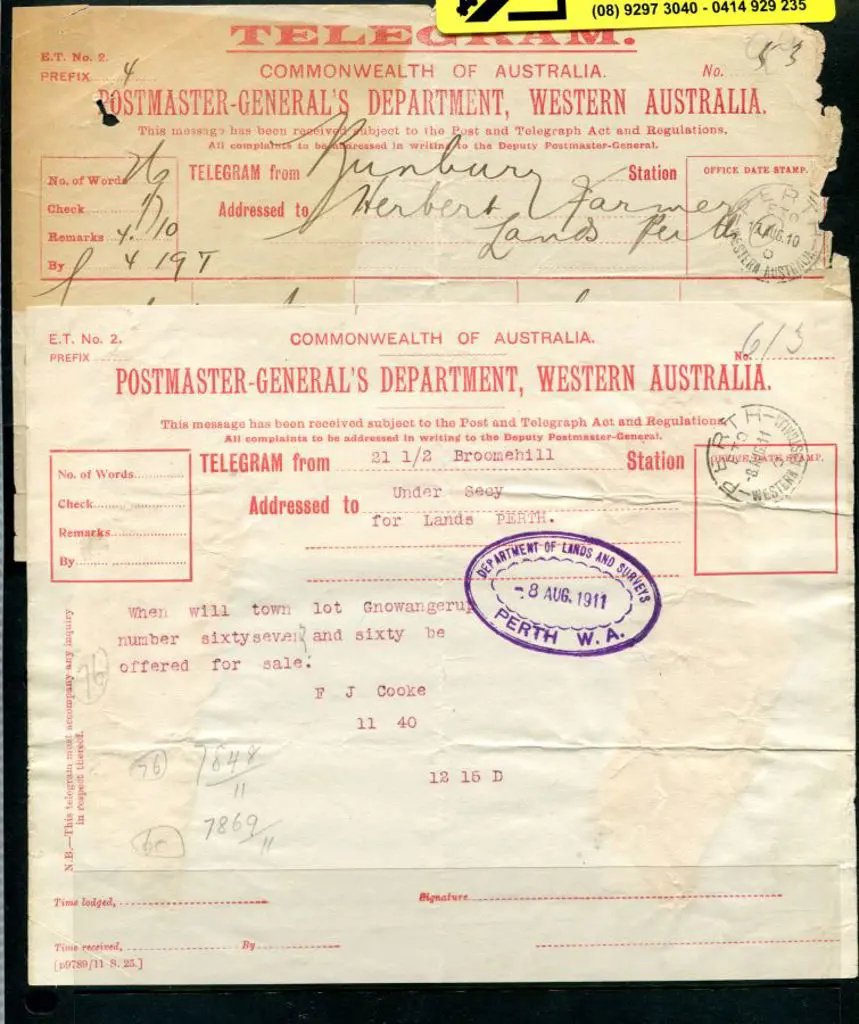 (08) 9297 3040 - 0414 929 235
TELEGRAM.
E.T. No. 2.
PREFIX 4
COMMONWEALTH OF AUSTRALIA.
No. 53
POSTMASTER-GENERAL'S DEPARTMENT, WESTERN AUSTRALIA.
This message has been received subject to the Post and Telegraph Act and Regulations.
All complaints to be addressed in writing to the Deputy Postmaster-General.
No. of Words 26
TELEGRAM from Bunbury Station
OFFICE DATE STAMP.
Check 17
Addressed to Herbert Farmer
Remarks 4.10
Lands Perth
By 4 19 T
PERTH
AUG.10
WESTERN AUSTRALIA
E.T. No. 2.
PREFIX
COMMONWEALTH OF AUSTRALIA.
No. 6/3
POSTMASTER-GENERAL'S DEPARTMENT, WESTERN AUSTRALIA.
This message has been received subject to the Post and Telegraph Act and Regulations.
All complaints to be addressed in writing to the Deputy Postmaster-General.
No. of Words
TELEGRAM from 21 1/2 Broomehill Station
OFFICE DATE STAMP.
PERTH
-8 AUG 11
WESTERN AUSTRALIA
Check
Addressed to Under Secy
Remarks
for Lands PERTH.
By
DEPARTMENT OF LANDS AND SURVEYS
-8 AUG. 1911
PERTH W.A.
When will town lot Gnowangerup
number sixtyseven and sixty be
offered for sale.
F J Cooke
11 40
12 15 D
76
76 7648/11
60 7869/11
N.B.—This telegram must accompany any inquiry
in respect thereof.
Time lodged,
Signature
Time received, By
[p9789/11-S. 25.]